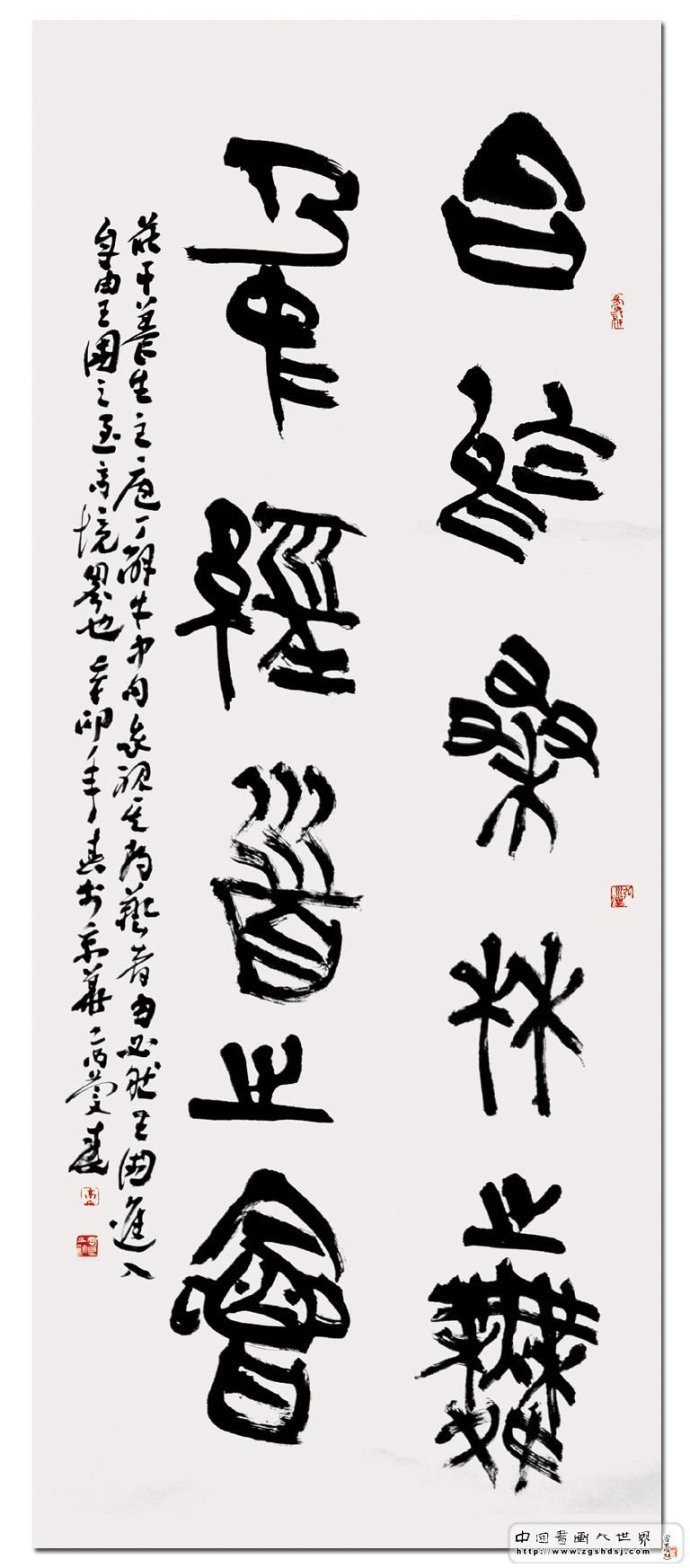 合於桑林之舞
乃中經首之會
莊子養生主庖丁解牛中句余視其為藝者由必然王國進入
自由王國之至高境界也辛卯年春於京華
中国書画大世界
http://www.zgshdsj.com